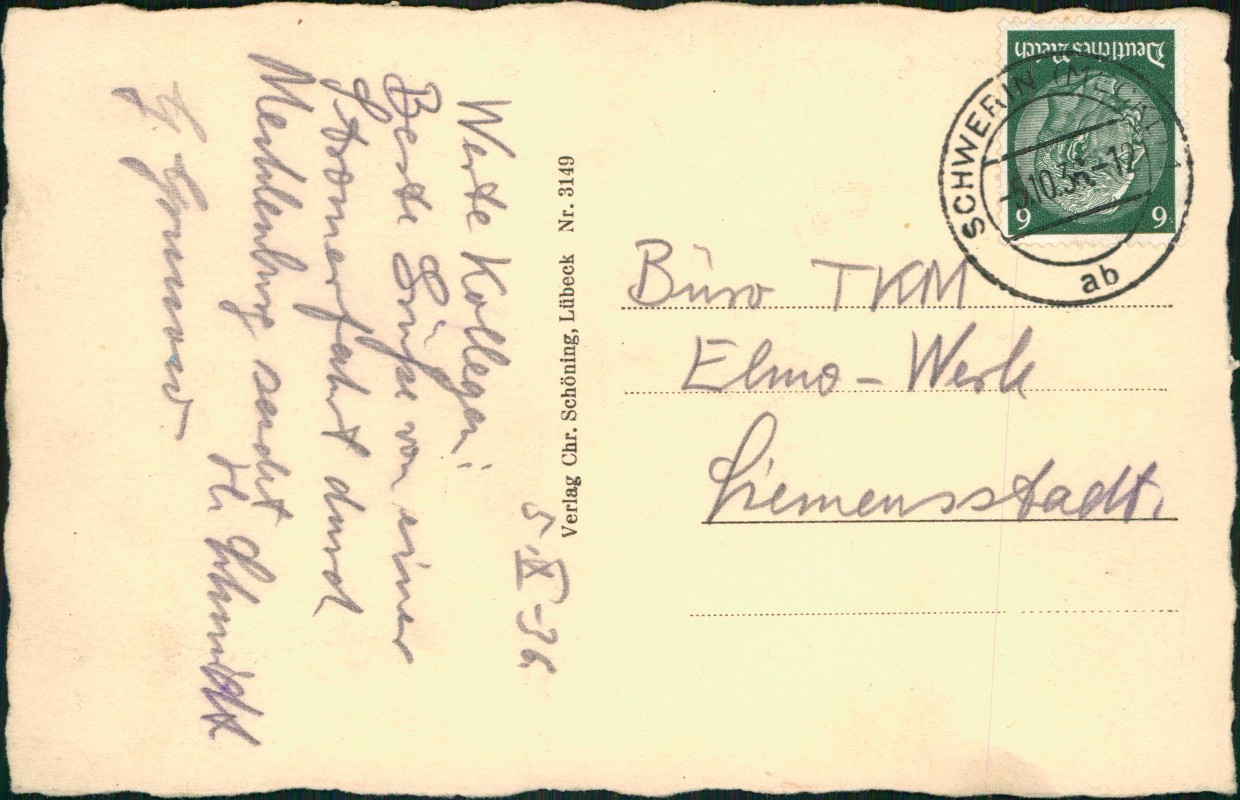 5.X-36
Werte Kollegen!
Beste Grüße von einer
Stromerfahrt durch
Mecklenburg sendet
H. Schmidt
Verlag Chr. Schöning, Lübeck Nr. 3149
Deutsches Reich
9 9
SCHWERIN (MECKL) 1
-5.10.36.-12
ab
Büro TKM
Elmo-Werk
Siemensstadt.